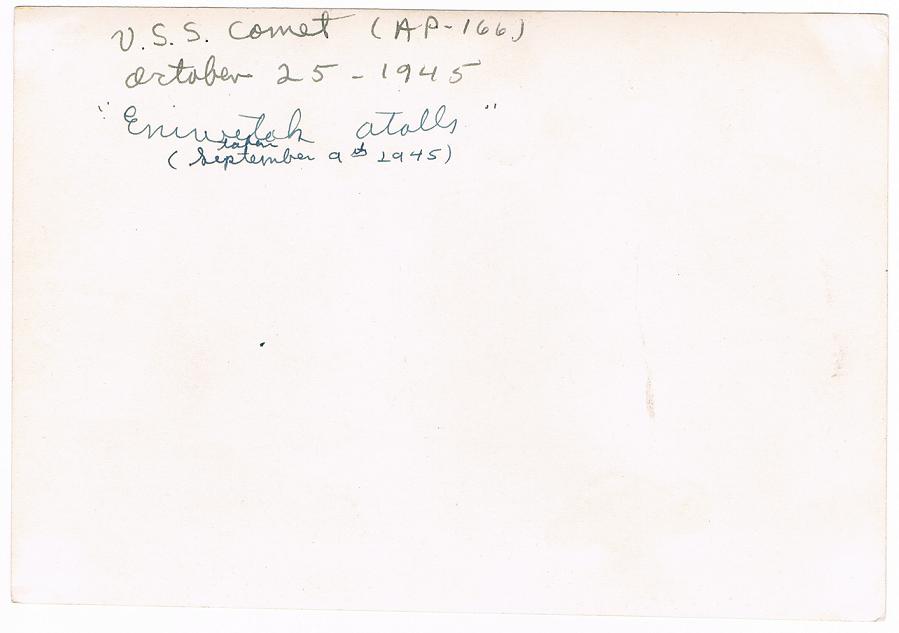 U.S.S. Comet (AP-166)
October 25 - 1945
"Eniwetok atolls"
(September 9th 1945)